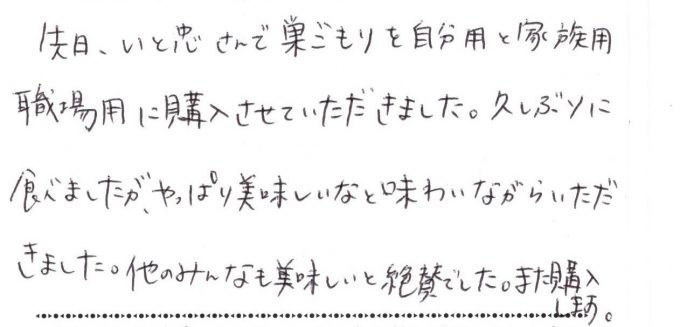 先日、いと忠さんで巣ごもりを自分用と家族用
職場用に購入させていただきました。久しぶりに
食べましたが、やっぱり美味しいなと味わいながらいただ
きました。他のみんなも美味しいと絶賛でした。また購入
します。